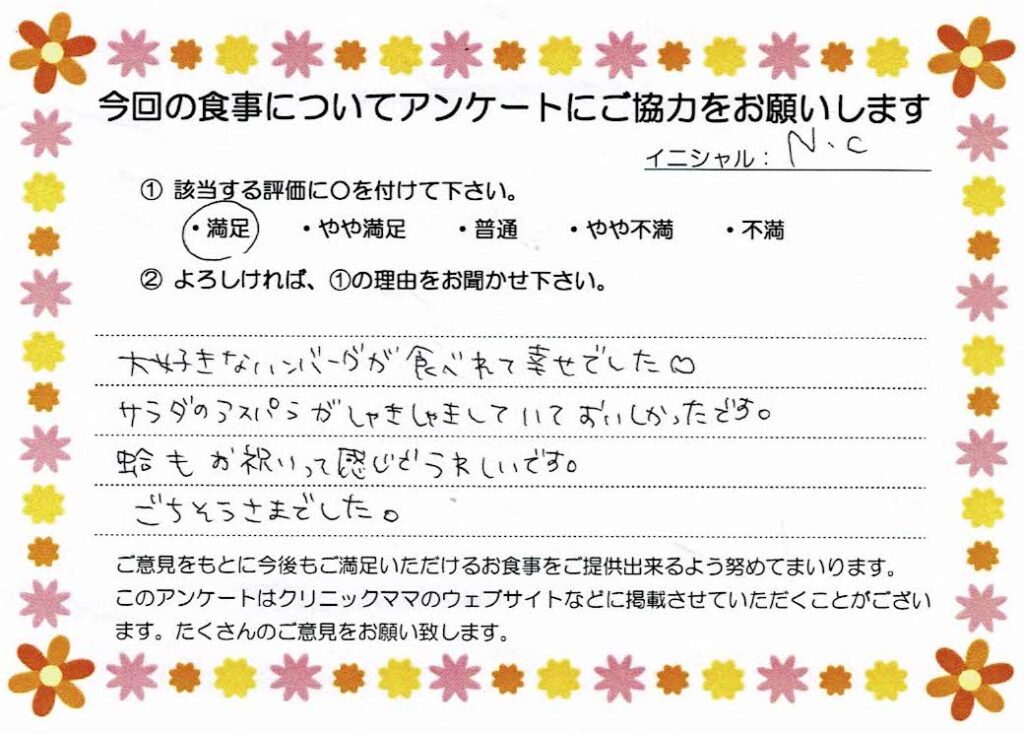 今回の食事についてアンケートにご協力をお願いします
イニシャル： N.C
① 該当する評価に〇を付けて下さい。
・満足 ・やや満足 ・普通 ・やや不満 ・不満
② よろしければ、①の理由をお聞かせ下さい。
大好きなハンバーグが食べれて幸せでした♡
サラダのアスパラがしゃきしゃきしていておいしかったです。
蛤もお祝いって感じでうれしいです。
ごちそうさまでした。
ご意見をもとに今後もご満足いただけるお食事をご提供出来るよう努めてまいります。
このアンケートはクリニックママのウェブサイトなどに掲載させていただくことがござい
ます。たくさんのご意見をお願い致します。